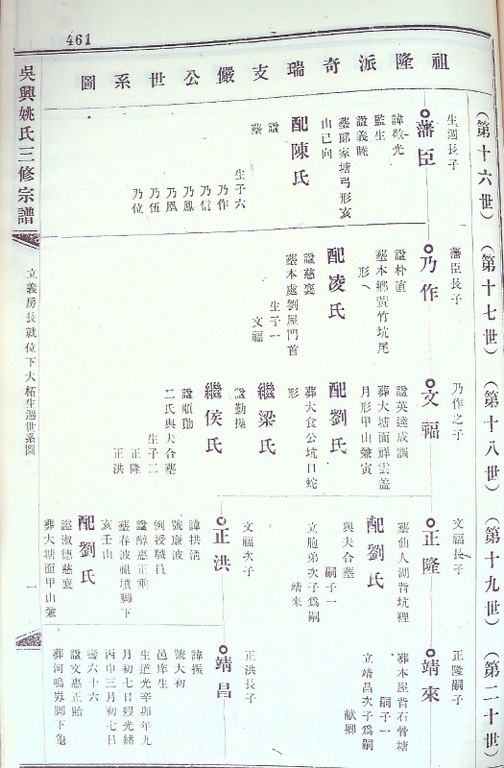 461
祖隆派奇瑞支儼公世系圖
吳興姚氏三修宗譜
立義房長就位下大柘生週世系圖
一
(第十六世)
生週長子
藩臣
諱敬光
監生
諡義睦
塟耶家塘弓形亥
山巳向
配陳氏
諡
塟
生子六
乃作
乃信
乃鳳
乃凰
乃伍
乃位
(第十七世)
藩臣長子
乃作
諡朴直
塟本鄉黃竹坑尾
形
配凌氏
諡慈裏
塟本處劉屋門首
生子一
文福
(第十八世)
乃作之子
文福
諡英達成誠
葬大塘面祥雲蓋
月形甲山兼寅
配劉氏
葬大食公坑口蛇
形
繼梁氏
諡勤操
繼侯氏
諡順勤
二氏與夫合塟
生子二
正隆
正洪
(第十九世)
文福長子
正隆
塟仙人湖背坑裡
配劉氏
與夫合塟
嗣子一
立胞弟次子爲嗣
靖來
文福次子
正洪
諱拱清
號康波
例授職員
諡醇惠正垂
塟春波祖墳脚下
亥壬山
配劉氏
諡淑德慈襄
葬大塘面甲山兼
(第二十世)
正隆嗣子
靖來
葬本屋背石骨塘
嗣子一
立靖昌次子爲嗣
獻卿
正洪長子
靖昌
諱振
號大初
邑庠生
生道光辛卯年九
月初七日歿光緒
丙申三月初七日
壽六十六
諡文惠正貽
葬河鳴㟁脚下龜